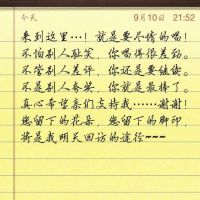 今天 9月10日 21:52
来到这里…！就是要尽情的唱！
不怕别人耻笑，你唱得很差劲。
不管别人差评，你还是要继续。
不是别人夸奖，你就是最棒了。
真心希望亲们支持我……谢谢！
您留下的花朵，您留下的脚印，
将是我明天回访的途径~~~